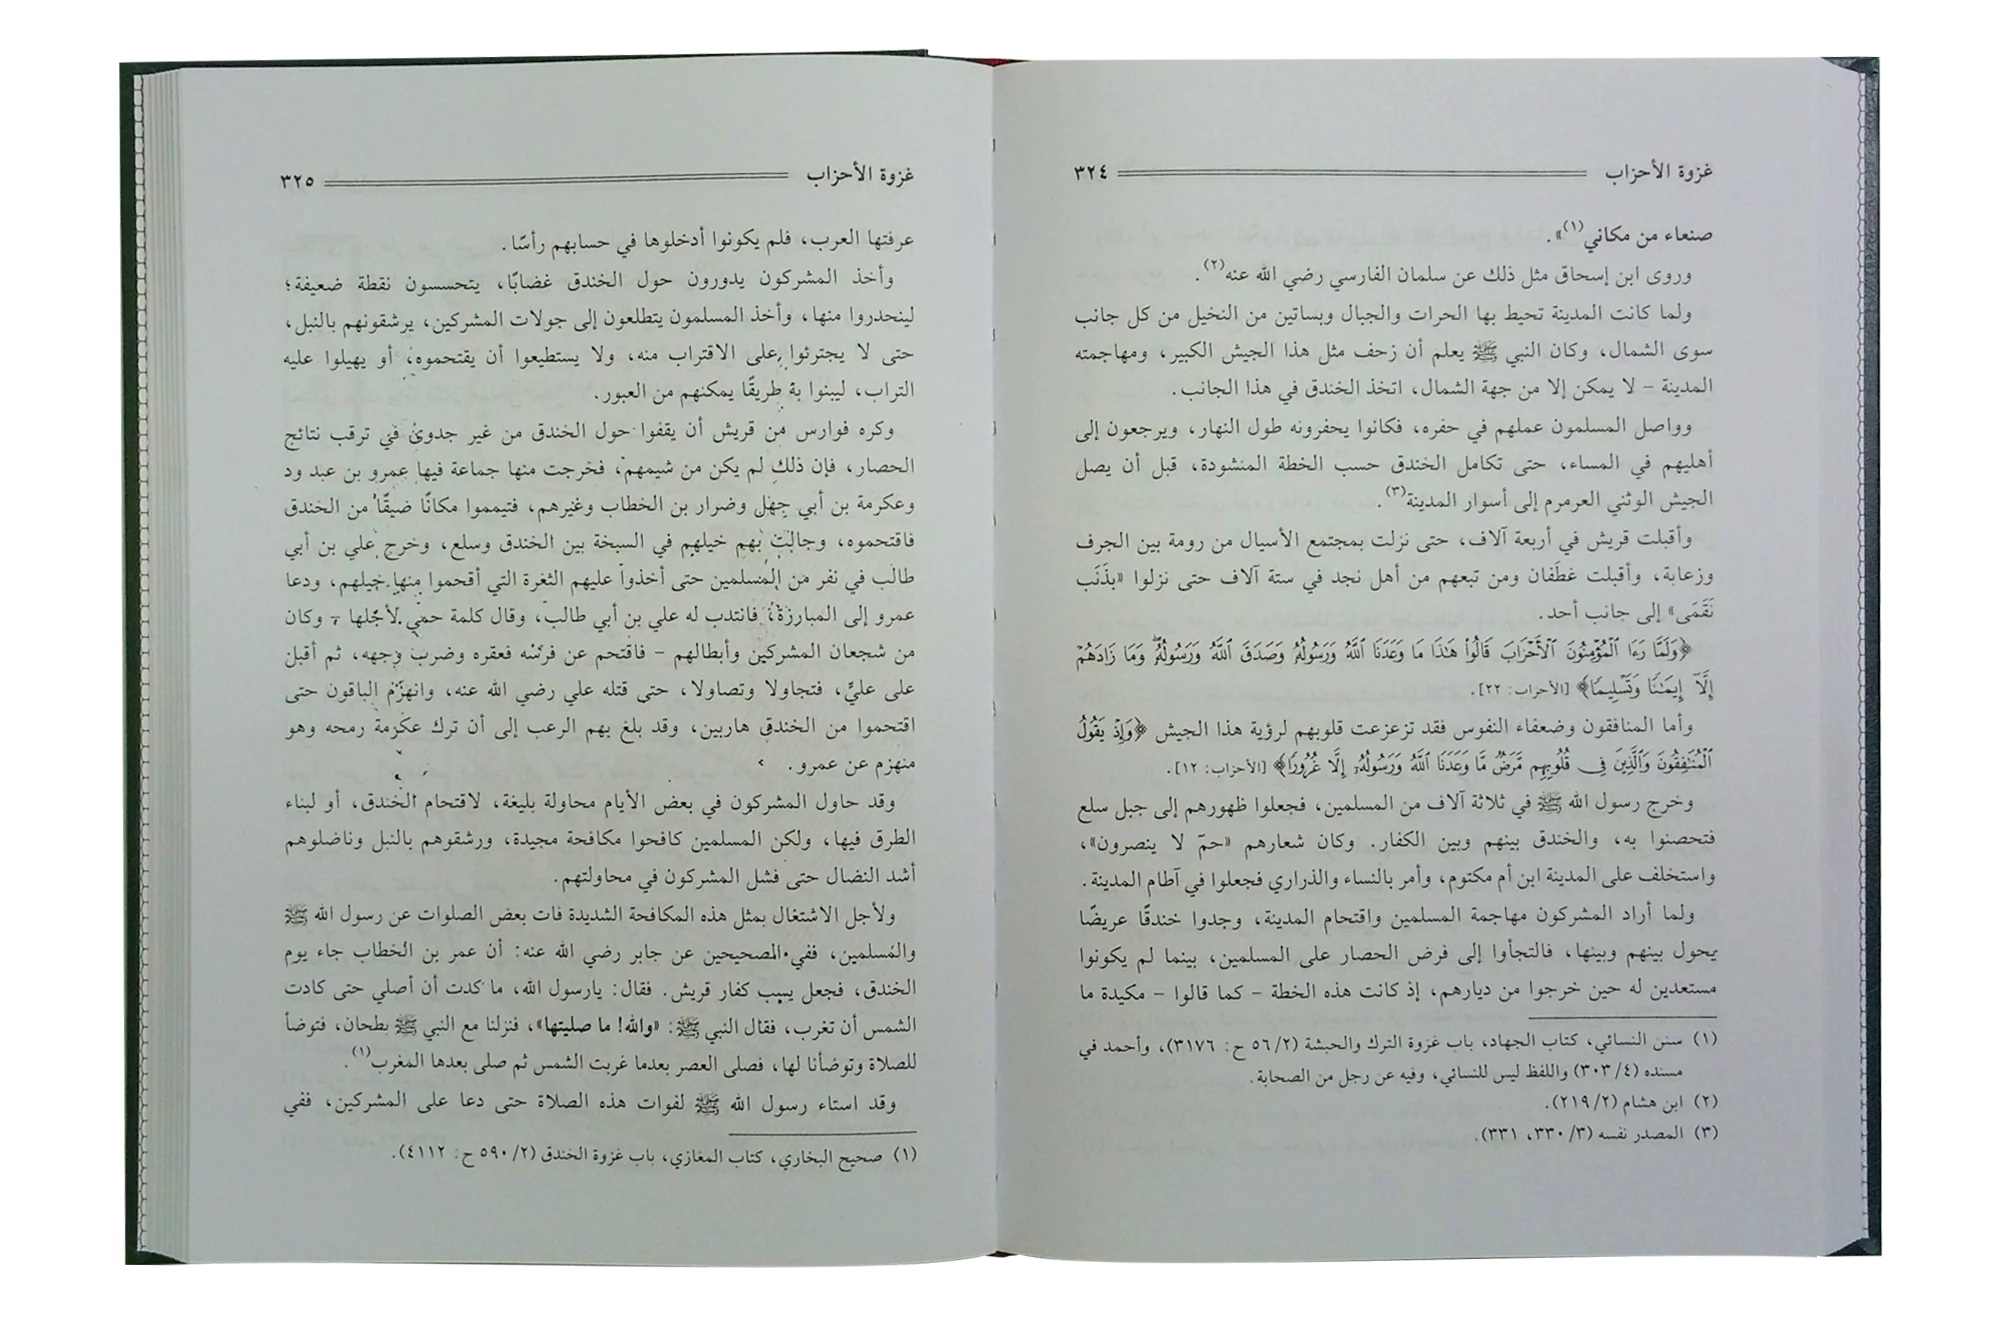 غزوة الأحزاب ٣٢٤
صنعاء من مكاني(١)».
وروى ابن إسحاق مثل ذلك عن سلمان الفارسي رضي الله عنه(٢).
ولما كانت المدينة تحيط بها الحرات والجبال وبساتين من النخيل من كل جانب
سوى الشمال، وكان النبي ﷺ يعلم أن زحف مثل هذا الجيش الكبير، ومهاجمته
المدينة – لا يمكن إلا من جهة الشمال، اتخذ الخندق في هذا الجانب.
وواصل المسلمون عملهم في حفره، فكانوا يحفرونه طول النهار، ويرجعون إلى
أهليهم في المساء، حتى تكامل الخندق حسب الخطة المنشودة، قبل أن يصل
الجيش الوثني العرمرم إلى أسوار المدينة(٣).
وأقبلت قريش في أربعة آلاف، حتى نزلت بمجتمع الأسيال من رومة بين الجرف
وزعابة، وأقبلت غطَفان ومن تبعهم من أهل نجد في ستة آلاف حتى نزلوا «بذَنَب
نَقَمَى» إلى جانب أحد.
﴿وَلَمَّا رَءَا ٱلْمُؤْمِنُونَ ٱلْأَحْزَابَ قَالُوا۟ هَٰذَا مَا وَعَدَنَا ٱللَّهُ وَرَسُولُهُۥ وَصَدَقَ ٱللَّهُ وَرَسُولُهُۥ ۚ وَمَا زَادَهُمْ
إِلَّآ إِيمَٰنًا وَتَسْلِيمًا﴾ [الأحزاب: ٢٢].
وأما المنافقون وضعفاء النفوس فقد تزعزعت قلوبهم لرؤية هذا الجيش ﴿وَإِذْ يَقُولُ
ٱلْمُنَٰفِقُونَ وَٱلَّذِينَ فِى قُلُوبِهِم مَّرَضٌ مَّا وَعَدَنَا ٱللَّهُ وَرَسُولُهُۥٓ إِلَّا غُرُورًا﴾ [الأحزاب: ١٢].
وخرج رسول الله ﷺ في ثلاثة آلاف من المسلمين، فجعلوا ظهورهم إلى جبل سلع
فتحصنوا به، والخندق بينهم وبين الكفار. وكان شعارهم «حمۤ لا ينصرون»،
واستخلف على المدينة ابن أم مكتوم، وأمر بالنساء والذراري فجعلوا في آطام المدينة.
ولما أراد المشركون مهاجمة المسلمين واقتحام المدينة، وجدوا خندقًا عريضًا
يحول بينهم وبينها، فالتجأوا إلى فرض الحصار على المسلمين، بينما لم يكونوا
مستعدين له حين خرجوا من ديارهم، إذ كانت هذه الخطة – كما قالوا – مكيدة ما
(١) سنن النسائي، كتاب الجهاد، باب غزوة الترك والحبشة (٥٦/٢ ح: ٣١٧٦)، وأحمد في
مسنده (٣٠٣/٤) واللفظ ليس للنسائي، وفيه عن رجل من الصحابة.
(٢) ابن هشام (٢١٩/٢).
(٣) المصدر نفسه (٣٣٠/٣، ٣٣١).
غزوة الأحزاب ٣٢٥
عرفتها العرب، فلم يكونوا أدخلوها في حسابهم رأسًا.
وأخذ المشركون يدورون حول الخندق غضابًا، يتحسسون نقطة ضعيفة؛
لينحدروا منها، وأخذ المسلمون يتطلعون إلى جولات المشركين، يرشقونهم بالنبل،
حتى لا يجترئوا على الاقتراب منه، ولا يستطيعوا أن يقتحموه، أو يهيلوا عليه
التراب، ليبنوا به طريقًا يمكنهم من العبور.
وكره فوارس من قريش أن يقفوا حول الخندق من غير جدوى في ترقب نتائج
الحصار، فإن ذلك لم يكن من شيمهم، فخرجت منها جماعة فيها عمرو بن عبد ود
وعكرمة بن أبي جهل وضرار بن الخطاب وغيرهم، فتيمموا مكانًا ضيقًا من الخندق
فاقتحموه، وجالت بهم خيلهم في السبخة بين الخندق وسلع، وخرج علي بن أبي
طالب في نفر من المسلمين حتى أخذوا عليهم الثغرة التي أقحموا منها خيلهم، ودعا
عمرو إلى المبارزة، فانتدب له علي بن أبي طالب، وقال كلمة حمي لأجلها – وكان
من شجعان المشركين وأبطالهم – فاقتحم عن فرسه فعقره وضرب وجهه، ثم أقبل
على عليٍّ، فتجاولا وتصاولا، حتى قتله علي رضي الله عنه، وانهزم الباقون حتى
اقتحموا من الخندق هاربين، وقد بلغ بهم الرعب إلى أن ترك عكرمة رمحه وهو
منهزم عن عمرو.
وقد حاول المشركون في بعض الأيام محاولة بليغة، لاقتحام الخندق، أو لبناء
الطرق فيها، ولكن المسلمين كافحوا مكافحة مجيدة، ورشقوهم بالنبل وناضلوهم
أشد النضال حتى فشل المشركون في محاولتهم.
ولأجل الاشتغال بمثل هذه المكافحة الشديدة فات بعض الصلوات عن رسول الله ﷺ
والمسلمين، ففي الصحيحين عن جابر رضي الله عنه: أن عمر بن الخطاب جاء يوم
الخندق، فجعل يسب كفار قريش. فقال: يارسول الله، ما كدت أن أصلي حتى كادت
الشمس أن تغرب، فقال النبي ﷺ: «والله! ما صليتها»، فنزلنا مع النبي ﷺ بطحان، فتوضأ
للصلاة وتوضأنا لها، فصلى العصر بعدما غربت الشمس ثم صلى بعدها المغرب(١).
وقد استاء رسول الله ﷺ لفوات هذه الصلاة حتى دعا على المشركين، ففي
(١) صحيح البخاري، كتاب المغازي، باب غزوة الخندق (٥٩٠/٢ ح: ٤١١٢).